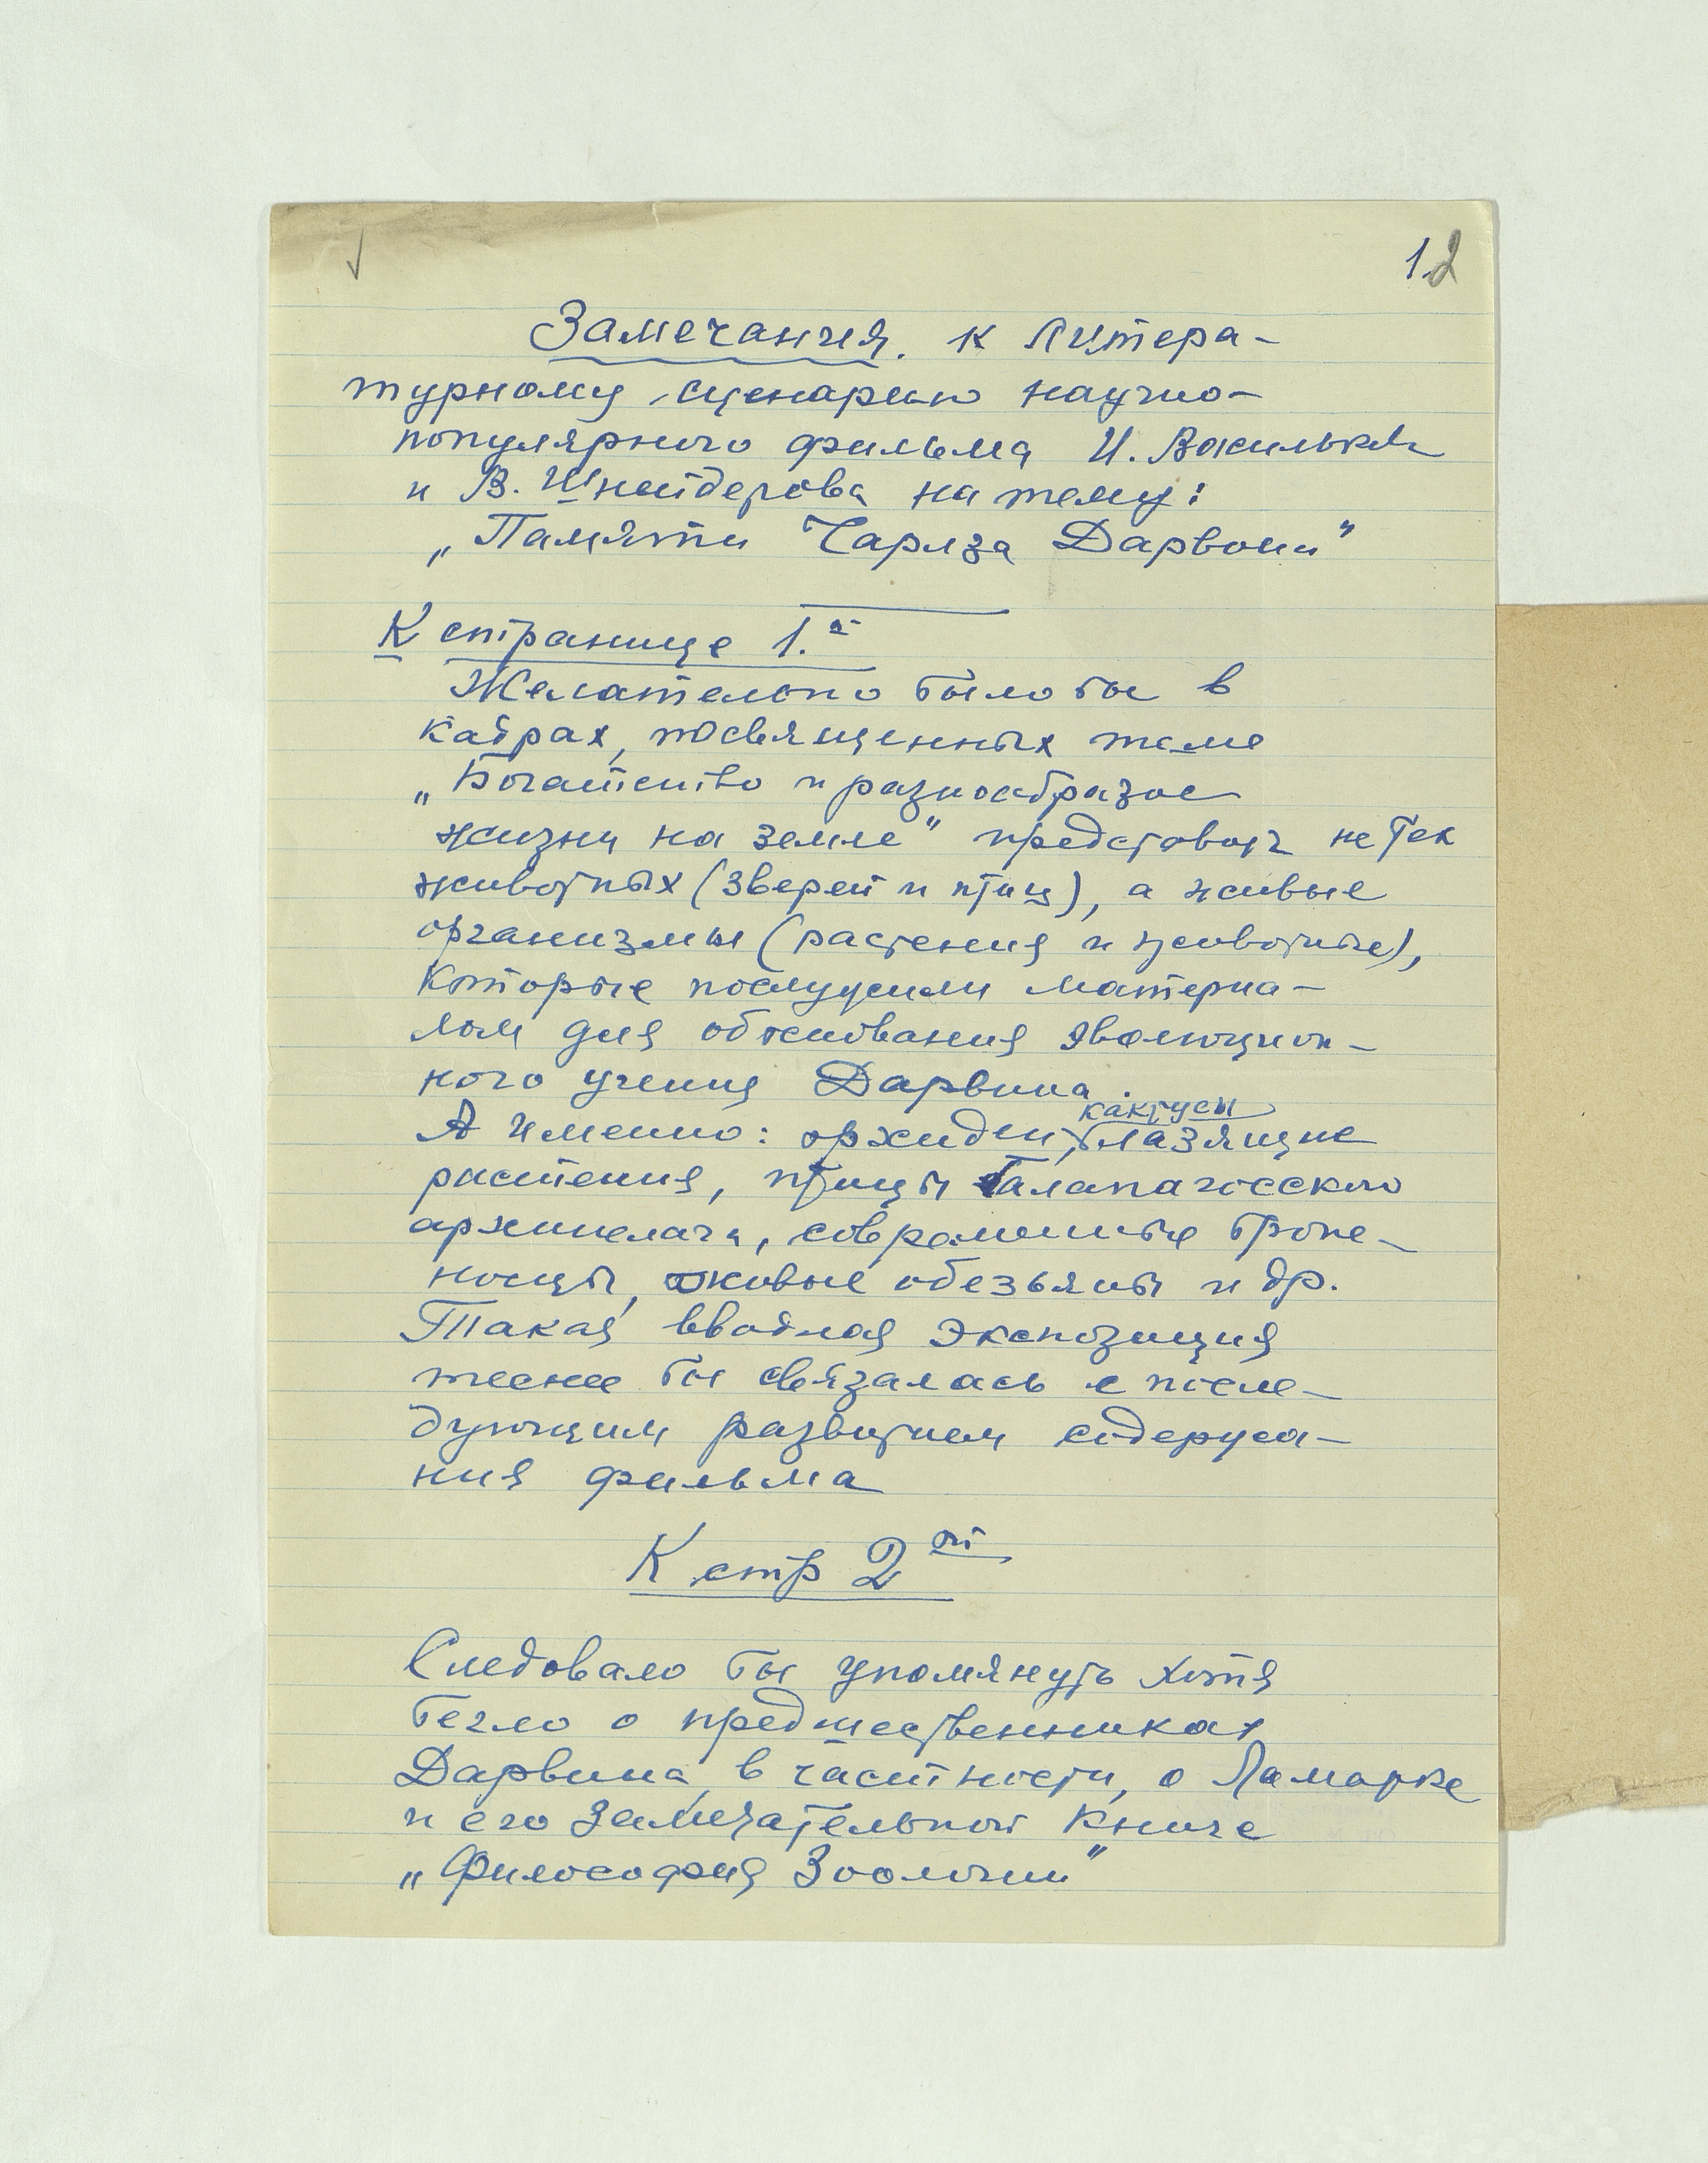 12
Замечания. к литера-
турному сценарию научно-
популярного фильма И. Василькова
и В. Шнейдерова на тему:
„Памяти Чарлза Дарвина"
К странице 1.й
Желательно было бы в
кадрах, посвященных теме
„Богатство и разнообразие
жизни на земле" представить не тех
животных (зверей и птиц), а живые
организмы (растения и животные),
которые послужили материа-
лом для обоснования эволюцион-
ного учения Дарвина.
кактусы
А именно: орхидеи, лазящие
растения, птицы Галапагосского
архипелага, современные броне-
носцы, живые обезьяны и др.
Такая вводная экспозиция
теснее бы связалась с после-
дующим развитием содержа-
ния фильма
К стр 2ой
Следовало бы упомянуть хотя
бегло о предшественниках
Дарвина, в частности, о Ламарке
и его замечательной книге
„Философия Зоологии"